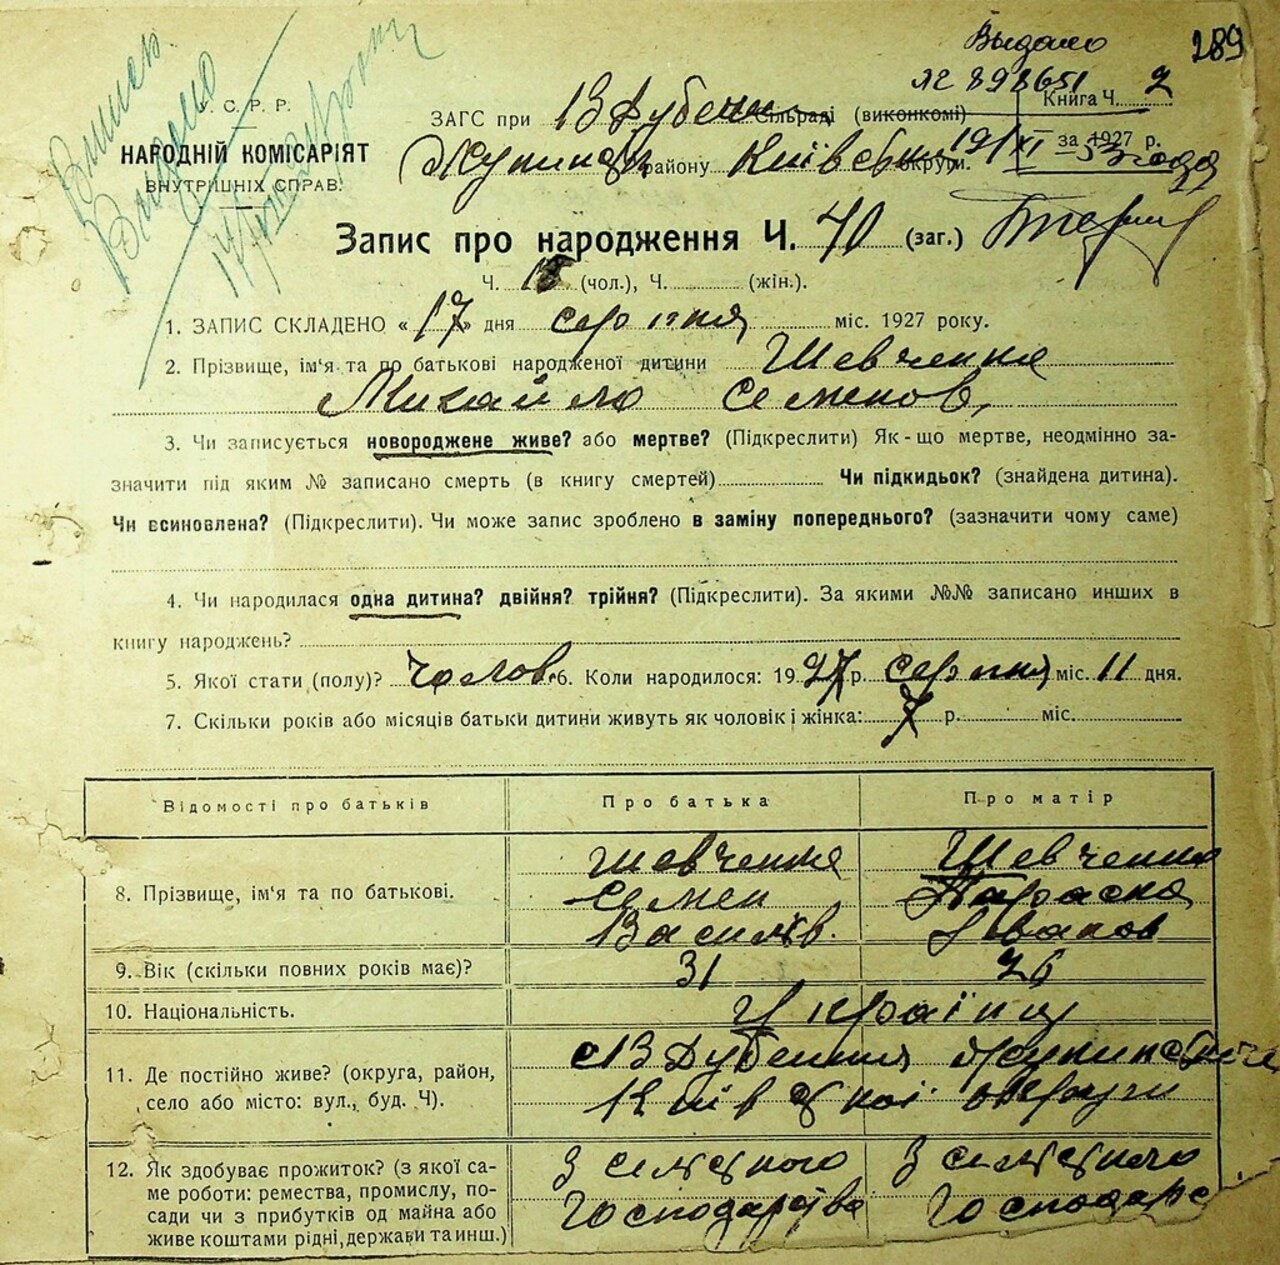 Выдано
289
ЯС 898651
У. С. Р. Р.
НАРОДНІЙ КОМІСАРІЯТ
ВНУТРІШНІХ СПРАВ.
Выдано
ЗАГС при В Дубечан. Сільраді (виконкомі)
Книга Ч. 2
району Київськ округи.
за 1927 р.
Запис про народження Ч. 40 (заг.)
Ч. 18 (чол.), Ч. (жін.).
1. ЗАПИС СКЛАДЕНО «17» дня серпня міс. 1927 року.
2. Прізвище, ім'я та по батькові народженої дитини Шевченко
Михайло Семенов.
3. Чи записується новороджене живе? або мертве? (Підкреслити) Як-що мертве, неодмінно за-
значити під яким № записано смерть (в книгу смертей) Чи підкидьок? (знайдена дитина).
Чи всиновлена? (Підкреслити). Чи може запис зроблено в заміну попереднього? (зазначити чому саме)
4. Чи народилася одна дитина? двійня? трійня? (Підкреслити). За якими №№ записано инших в
книгу народжень?
5. Якої стати (полу)? Чолов. 6. Коли народилося: 1927 р. серпня міс. 11 дня.
7. Скільки років або місяців батьки дитини живуть як чоловік і жінка: 7 р. міс.
Відомості про батьків
Про батька
Про матір
8. Прізвище, ім'я та по батькові.
Шевченко
Семен
Василів.
Шевченко
Параска
Іванов
9. Вік (скільки повних років має)?
31
26
10. Національність.
Українці
11. Де постійно живе? (округа, район,
село або місто: вул., буд. Ч).
с В Дубечня
Київської округи
12. Як здобуває прожиток? (з якої са-
ме роботи: ремества, промислу, по-
сади чи з прибутків од майна або
живе коштами рідні, держави та инш.)
З сільського
господарства
З сільського
господарс